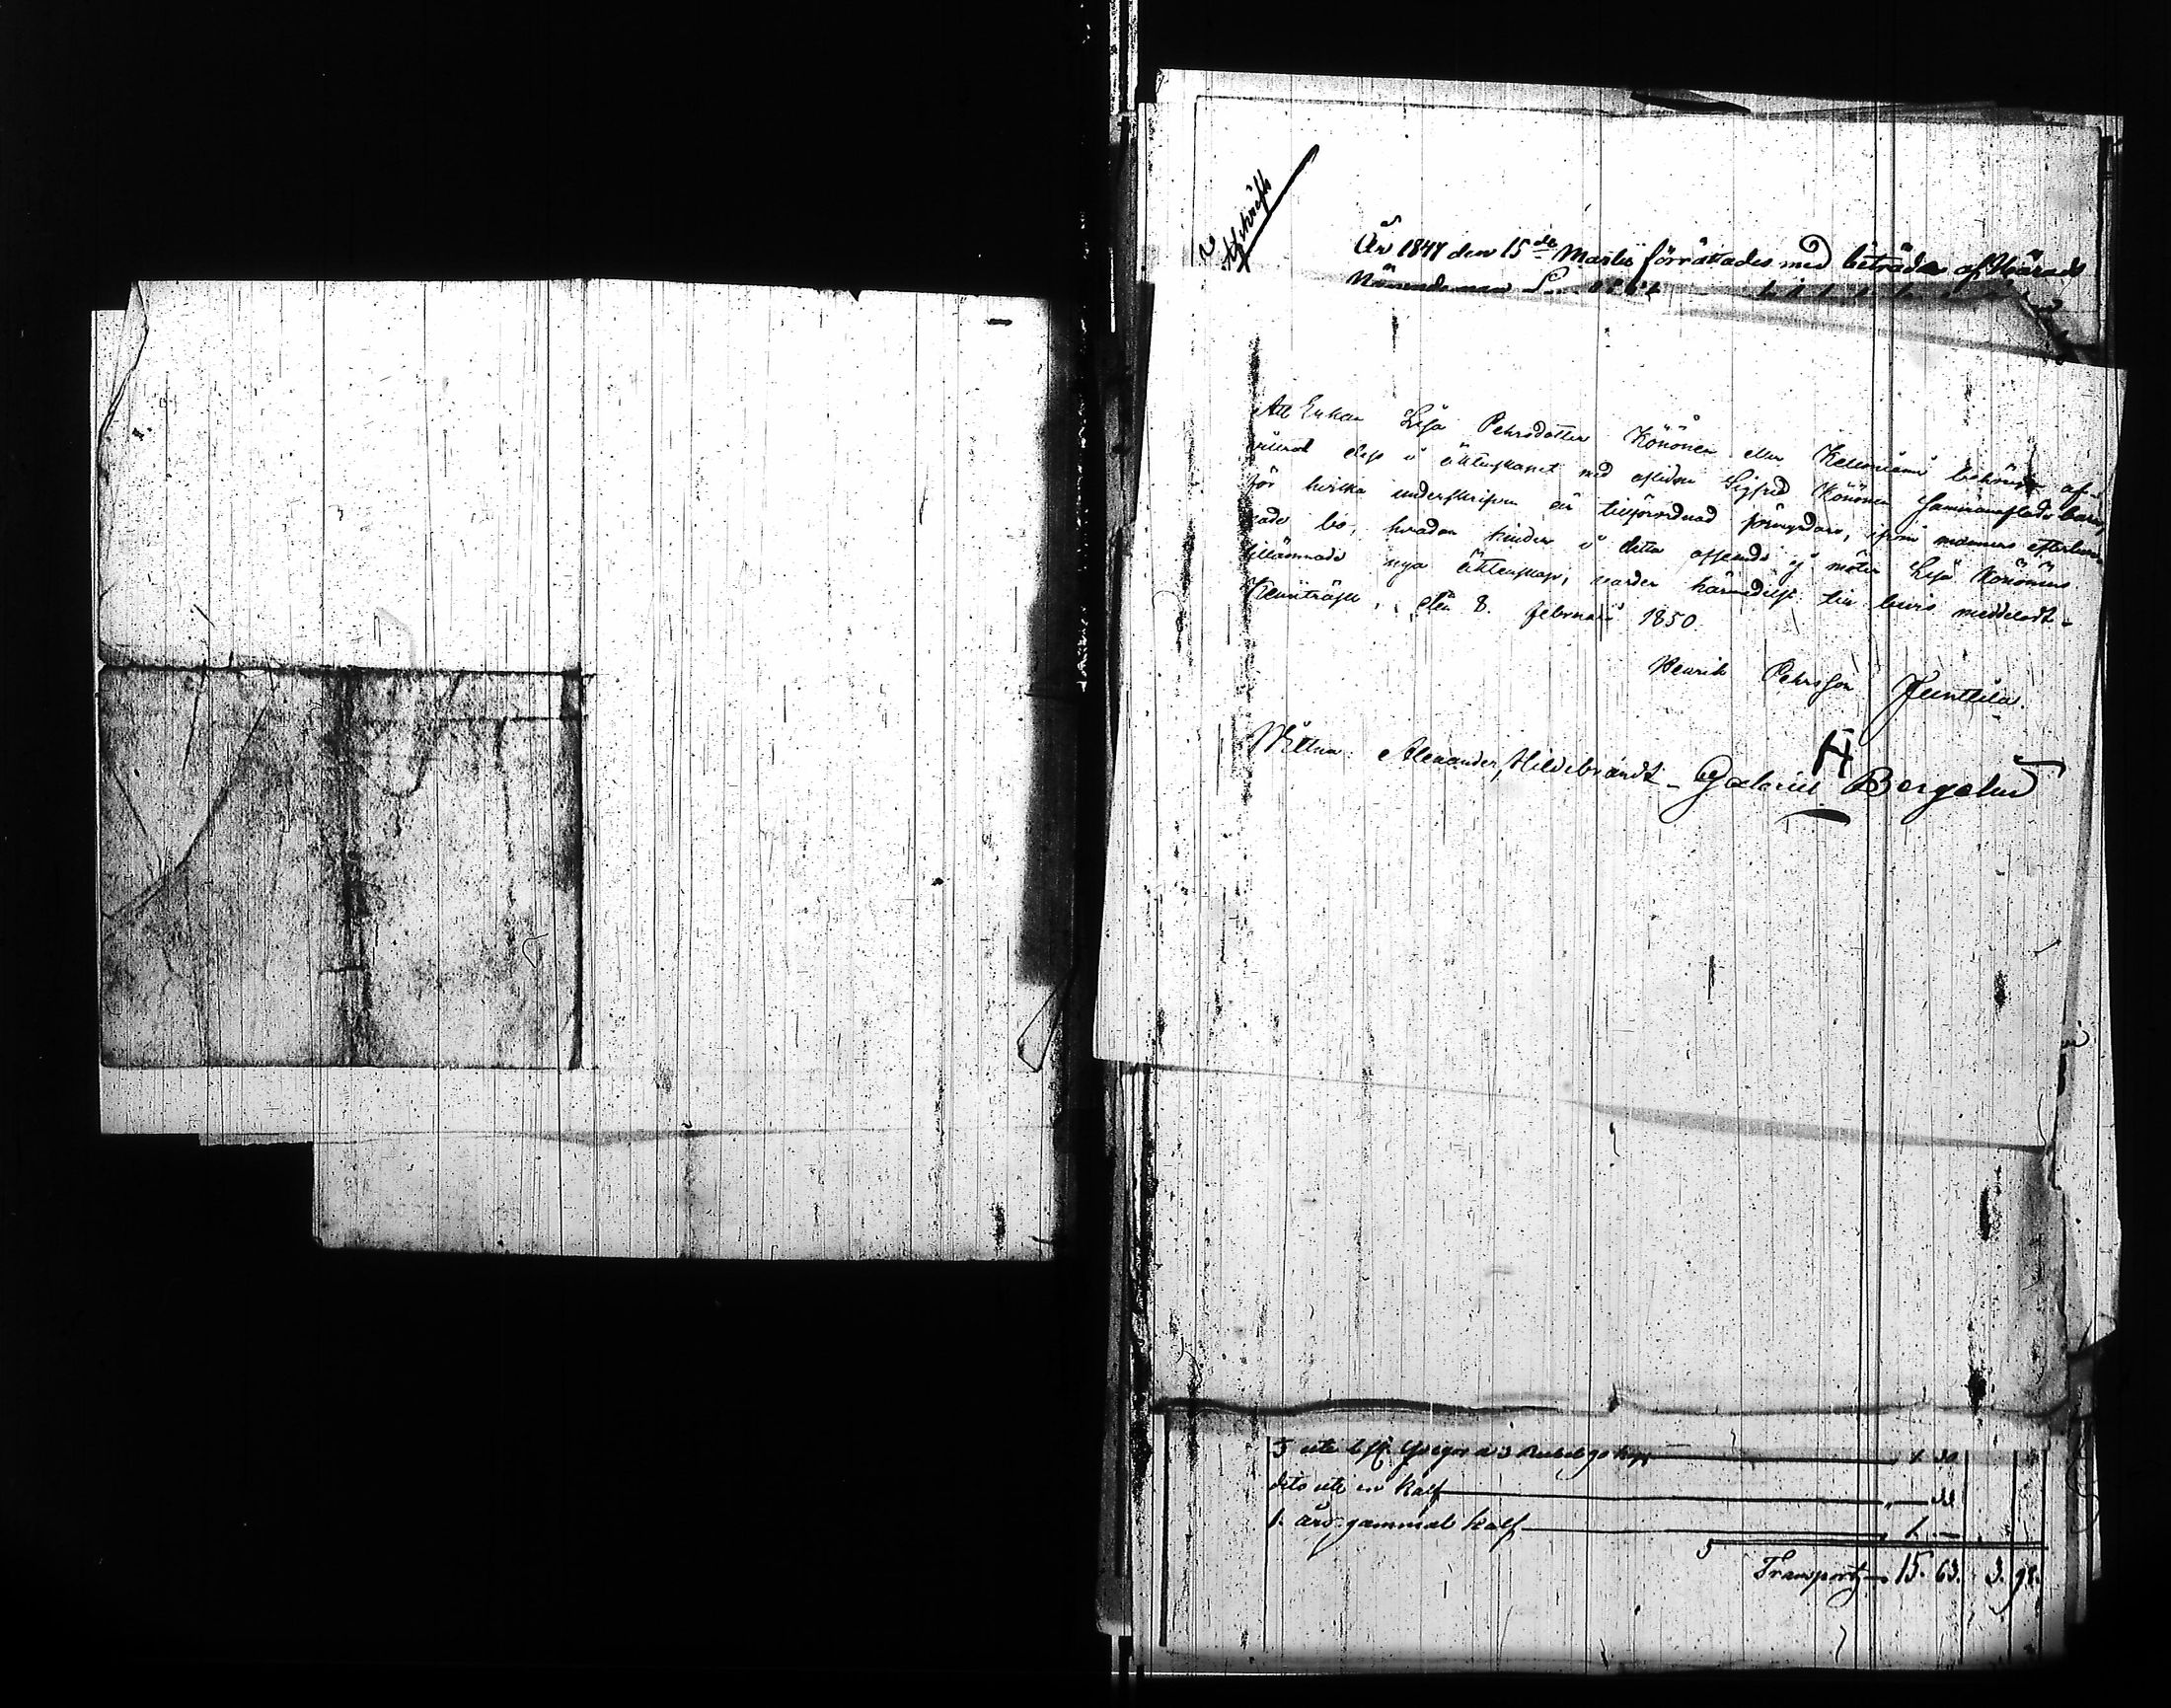 Afskrift
År 1847 den 15de Martii förrättades med biträde af Härads
Nämndeman
Att Enkan Lisa Pehrsdotter Könönen eller Keleniemi behörigt af-
vittrat dess i äktenskapet med aflidne Sigfred Könönen sammanaflade barn,
för hvilka underskrifven är tillförordnad förmyndare, ifrån mannens efterläm-
nade bo, hvadan hinder i detta afseende ej möter Lisa Könönens
tillämnade nya äktenskap; varder härmedelst till bevis meddeladt.
den 8. Februarii 1850.
Henrik Pehrsson Juntila.
H
Vittna: Alexander Hildebrandt. Gabriel Bergelin
dito ute en kalf
1. års gammal kalf 1. —
Transport 15. 63. 3. 92.